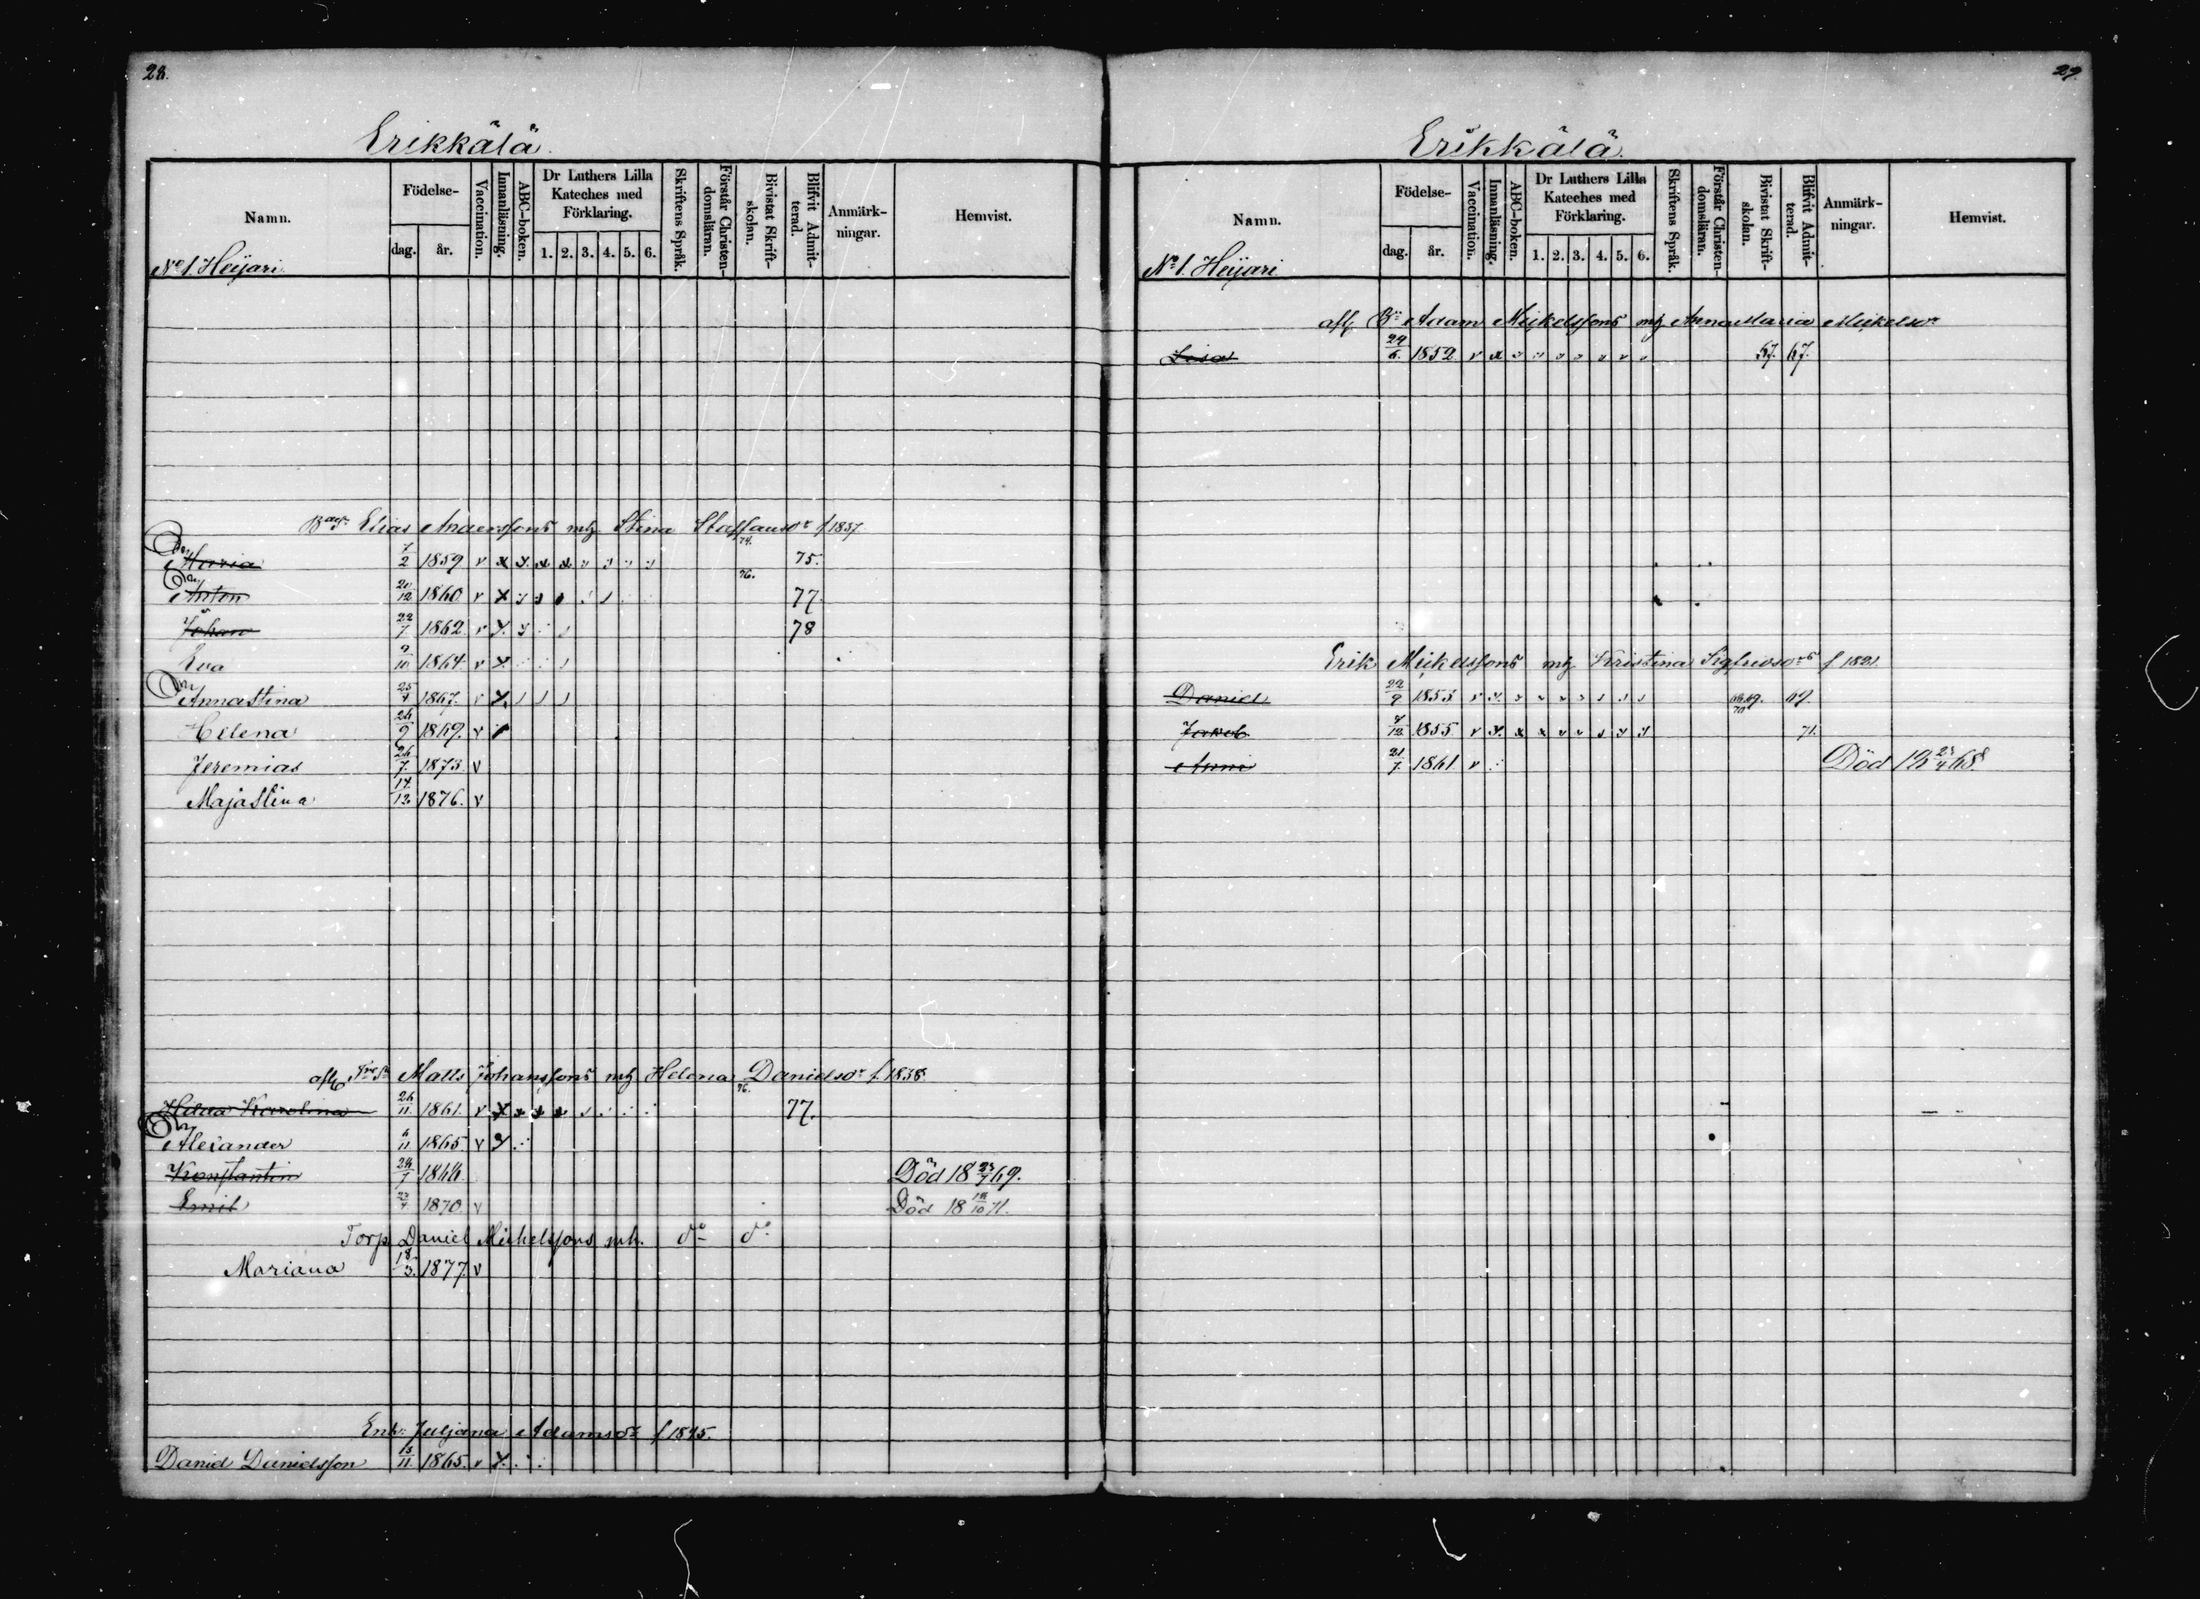 28.
Erikkälä.
Namn.
Födelse-
dag. år.
Vaccination.
Innanläsning.
ABC-boken.
Dr Luthers Lilla Kateches med Förklaring.
1. 2. 3. 4. 5. 6.
Skriftens Språk.
Förstår Christen-domsläran.
Bivistat Skrift-skolan.
Blifvit Admit-terad.
Anmärk-ningar.
Hemvist.
No 1. Heijari
Elias Anderssons mh Stina Staffansdr f 1837
Maria 7/2 1859 v x 74. 75.
Anton 20/12 1860 v x 76. 77.
Johan 22/7 1862 v 78
Eva 9/10 1864 v
Annastina 25/4 1867. v
Helena 26/9 1869. v
Jeremias 26/7. 1873 v
Majastina 14/12 1876. v
Matts Johanssons mh Helena Danielsdr f. 1838.
Helena Karolina 26/11 1861. v x 76. 77.
Alexander 6/11 1865 v
Konstantin 24/7 1866 Död 18 23/7 69.
Emil 1870 v Död 18 18/10 71.
Torp. Daniel Mickelssons mh. do do
Mariana 18/3. 1877. v
Enk. Juljana Adamsdr f 1845.
Daniel Danielsson 13/11 1865. v
29.
Erikkälä.
Namn.
Födelse-
dag. år.
Vaccination.
Innanläsning.
ABC-boken.
Dr Luthers Lilla Kateches med Förklaring.
1. 2. 3. 4. 5. 6.
Skriftens Språk.
Förstår Christen-domsläran.
Bivistat Skrift-skolan.
Blifvit Admit-terad.
Anmärk-ningar.
Hemvist.
No 1. Heijari
Adam Mickelssons mh Annamaria Mickelsdr
Lisa 24/6. 1852 v x 67. 67.
Erik Mickelssons mh Kristina Sigfridsdr f 1821.
Daniel 22/9 1853 v 69.
Jakob 4/12 1855 v 71.
Anni 21/7 1861 v Död 18 23/4 68